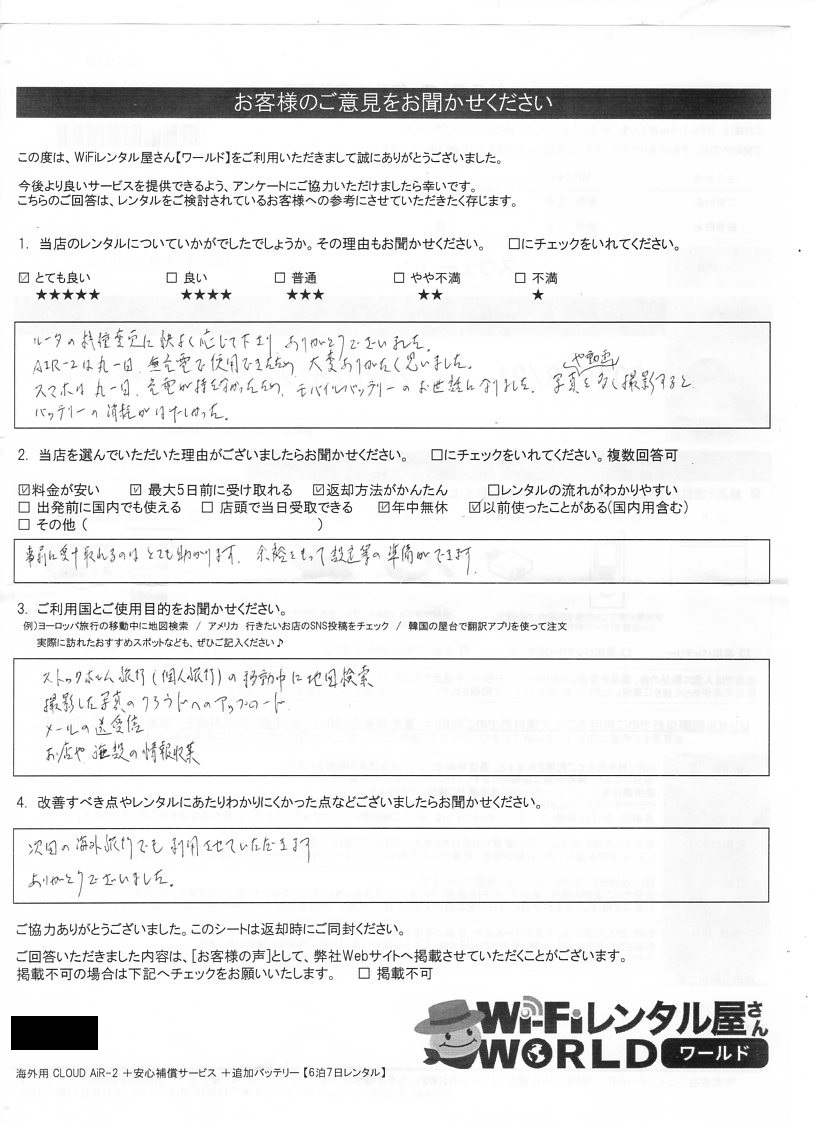 お客様のご意見をお聞かせください
この度は、WiFiレンタル屋さん【ワールド】をご利用いただきまして誠にありがとうございました。
今後より良いサービスを提供できるよう、アンケートにご協力いただけましたら幸いです。
こちらのご回答は、レンタルをご検討されているお客様への参考にさせていただきたく存じます。
1. 当店のレンタルについていかがでしたでしょうか。その理由もお聞かせください。 □にチェックをいれてください。
☑ とても良い □ 良い □ 普通 □ やや不満 □ 不満
★★★★★ ★★★★ ★★★ ★★ ★
ルータの機種変更に快よく応じて下さり ありがとうございました。
AIR-2は丸一日、無充電で使用できたため、大変ありがたく思いました。
スマホは丸一日、充電が持たなかったため、モバイルバッテリーのお世話になりました。写真や動画を多く撮影すると
バッテリーの消耗がはげしかった。
2. 当店を選んでいただいた理由がございましたらお聞かせください。 □にチェックをいれてください。複数回答可
☑料金が安い ☑ 最大5日前に受け取れる ☑返却方法がかんたん □レンタルの流れがわかりやすい
□ 出発前に国内でも使える □ 店頭で当日受取できる ☑年中無休 ☑以前使ったことがある(国内用含む)
□ その他 ( )
事前に受け取れるのはとても助かります。余裕をもって設定等の準備ができます。
3. ご利用国とご使用目的をお聞かせください。
例)ヨーロッパ旅行の移動中に地図検索 / アメリカ 行きたいお店のSNS投稿をチェック / 韓国の屋台で翻訳アプリを使って注文
実際に訪れたおすすめスポットなども、ぜひご記入ください♪
ストックホルム旅行(個人旅行)の移動中に地図検索
撮影した写真のクラウドへのアップロード.
メールの送受信
お店や施設の情報収集
4. 改善すべき点やレンタルにあたりわかりにくかった点などございましたらお聞かせください。
次回の海外旅行でも利用させていただきます
ありがとうございました。
ご協力ありがとうございました。このシートは返却時にご同封ください。
ご回答いただきました内容は、[お客様の声]として、弊社Webサイトへ掲載させていただくことがございます。
掲載不可の場合は下記へチェックをお願いいたします。 □ 掲載不可
Wi-Fiレンタル屋さん
WORLD ワールド
海外用 CLOUD AiR-2 +安心補償サービス +追加バッテリー【6泊7日レンタル】